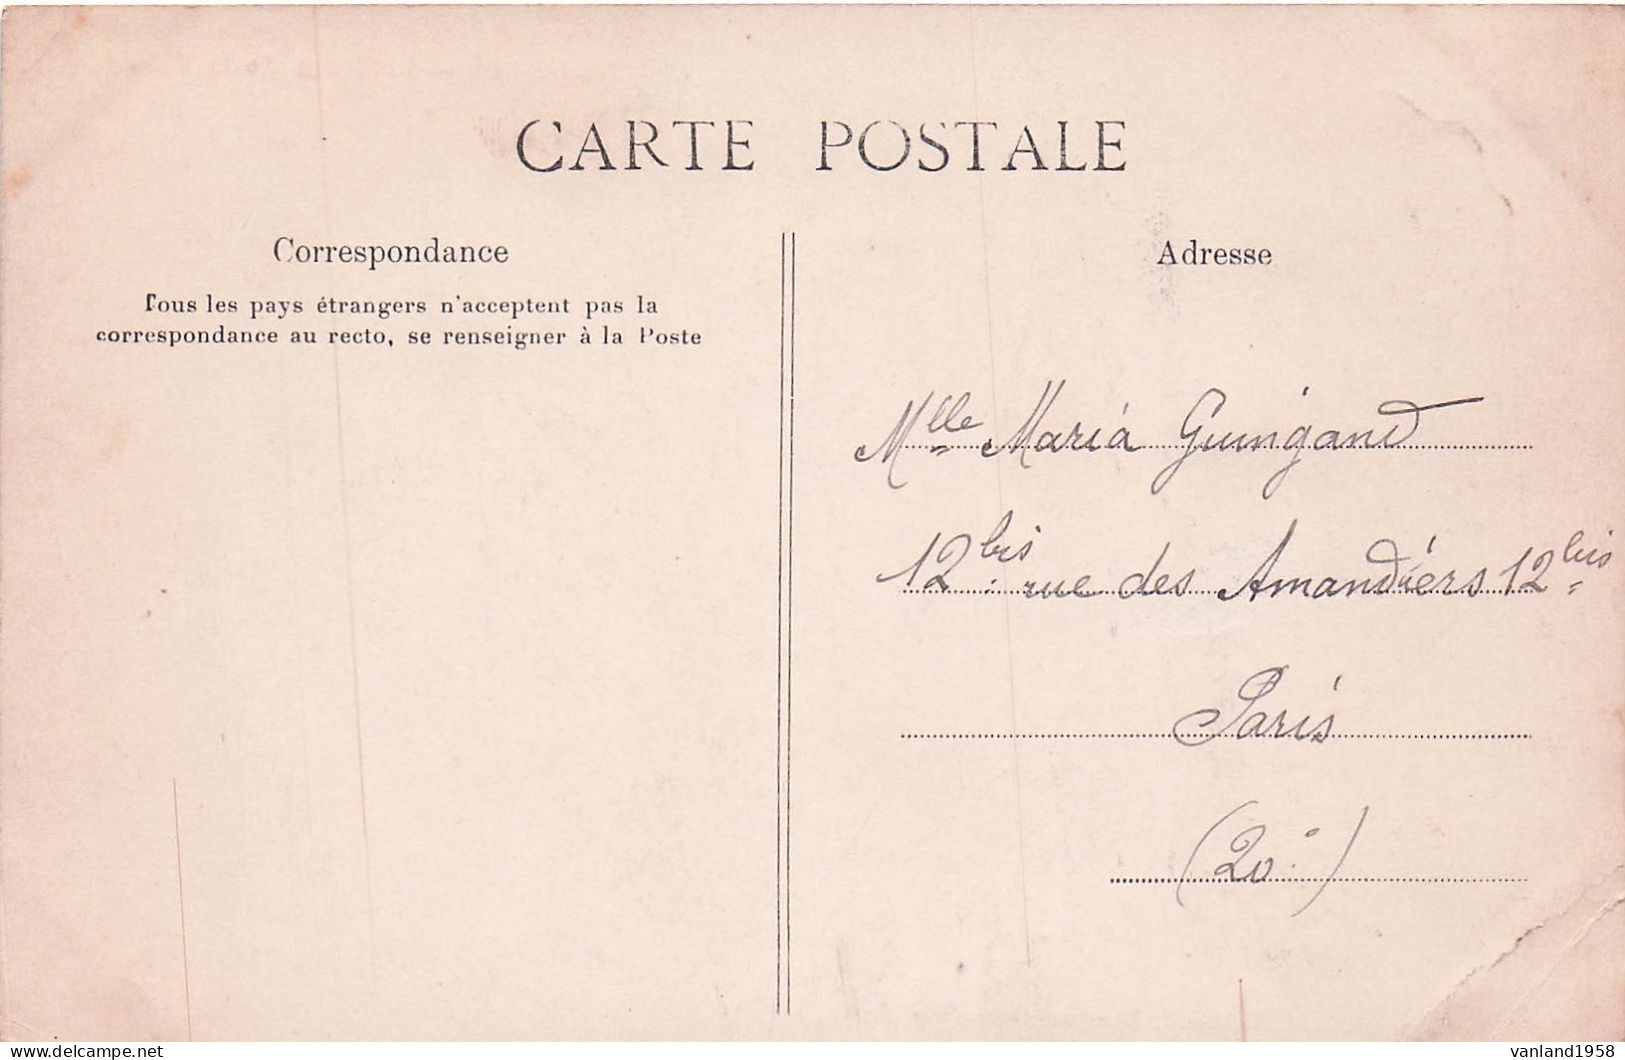 CARTE POSTALE
Correspondance
Tous les pays étrangers n'acceptent pas la
correspondance au recto, se renseigner à la Poste
Adresse
Mlle Maria Guingand
12 bis rue des Amandiers 12 bis
Paris
(20e)
delcampe.net
vanland1958